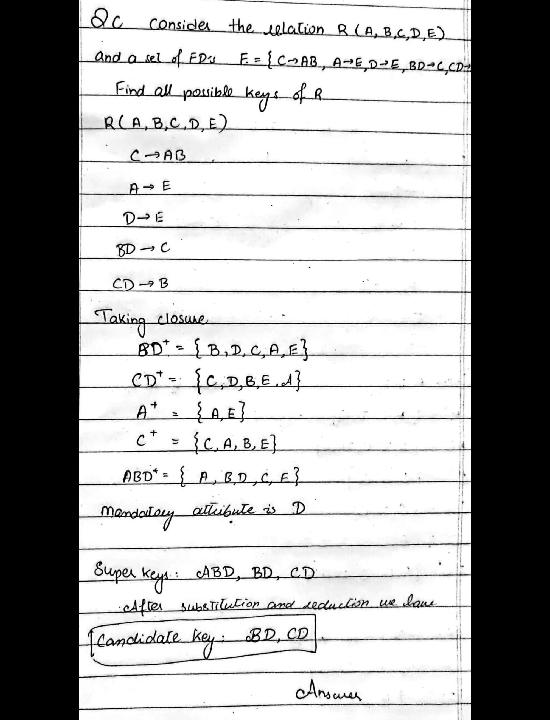 Qc Consider the relation R (A, B, C, D, E)
and a set of FDs F = { C→AB, A→E, D→E, BD→C, CD→
Find all possible keys of R
R ( A, B, C, D, E)
C → AB
A → E
D → E
BD → C
CD → B
Taking closure
BD⁺ = { B, D, C, A, E}
CD⁺ = { C, D, B, E, A}
A⁺ = { A, E}
C⁺ = { C, A, B, E}
ABD⁺ = { A, B, D, C, E}
Mandatory attribute is D
Super keys: ABD, BD, CD
After substitution and reduction we have
Candidate key: BD, CD
Answer